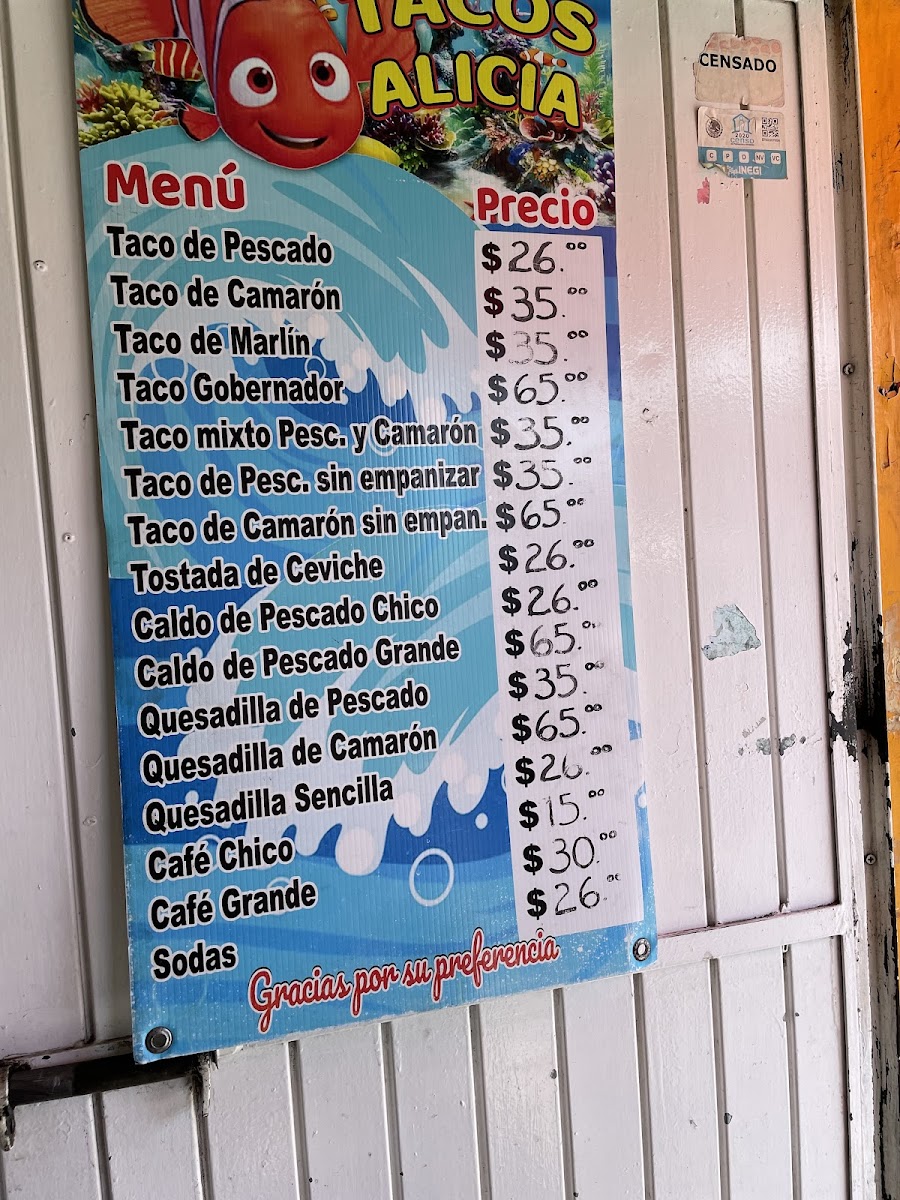 TACOS
ALICIA
CENSADO
2020
CENSO
C P D NV VC
INEGI
Menú Precio
Taco de Pescado $26.00
Taco de Camarón $35.00
Taco de Marlín $35.00
Taco Gobernador $65.00
Taco mixto Pesc. y Camarón $35.00
Taco de Pesc. sin empanizar $35.00
Taco de Camarón sin empan. $65.00
Tostada de Ceviche $26.00
Caldo de Pescado Chico $26.00
Caldo de Pescado Grande $65.00
Quesadilla de Pescado $35.00
Quesadilla de Camarón $65.00
Quesadilla Sencilla $26.00
Café Chico $15.00
Café Grande $30.00
Sodas $26.00
Gracias por su preferencia